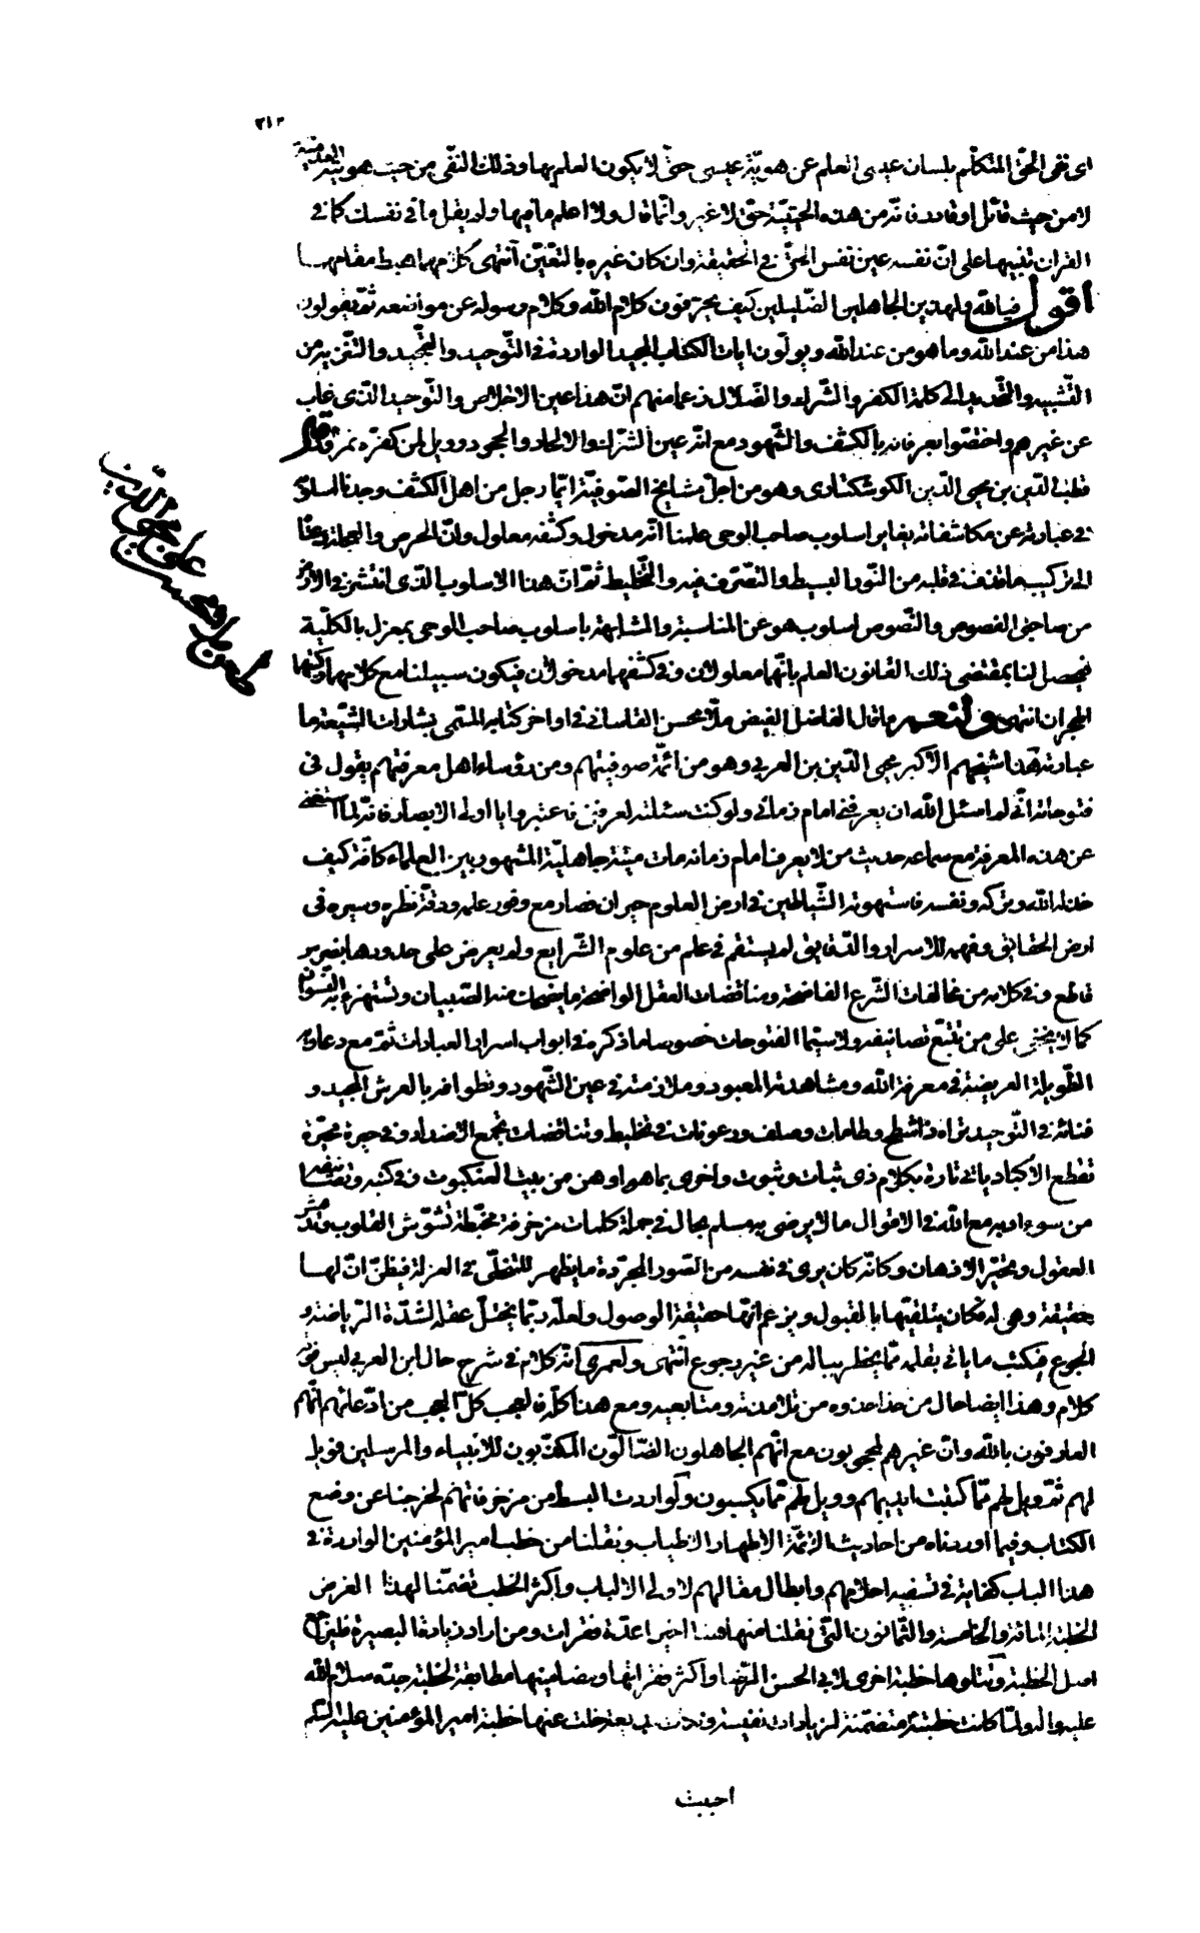 ٢١٣
اى نفى الحقّ المتكلّم بلسان عيسى العلم عن هويّة عيسى حتّى لا يكون العلم بها وذلك النفى من حيث هويّته العدميّة
لا من حيث قائل او قادر فانّه من هذه الحيثيّة حقّ لا غير وانّما قال ولا اعلم ما فيها ولم يقل ما فى نفسك كما فى
القران تنبيها على انّ نفسه عين نفس الحقّ فى الحقيقة وان كان غيره بالتعيّن انتهى كلامهما هبط مقامهما
اقول فيالله ولهذين الجاهلين الضّليلين كيف يحرّفون كلام الله وكلام رسوله عن مواضعه ثمّ يقولون
هذا من عند الله وما هو من عند الله ويولّون ايات الكتاب المجيد الواردة فى التّوحيد والتّمجيد والتنزيه من
التّشبيه والتّحديد الى كلمة الكفر والشّرك والضّلال زعما منهم انّ هذا عين الاخلاص والتّوحيد الّذى غاب
عن غيرهم واختصّوا بعرفانه بالكشف والشّهود مع انّه عين الشّرك والالحاد والجحود وويل لمن كفّره نمرود قال
قطب الدّين بن محيى الدّين الكوشكنارى وهو من اجلّ مشايخ الصّوفيّة ايّما رجل من اهل الكشف وجدنا اسلوبه
فى عبارته عن مكاشفاته يغاير اسلوب صاحب الوحى علمنا انّه مدخول وكشفه معلول وانّ الحرص والعجلة دعتا
الى تركيب ما قذف فى قلبه من النّور البسيط والتصرّف فيه والتّخليط ثمّ انّ هذا الاسلوب الّذى انتشر فى الارض
من صاحبى الفصوص والنّصوص اسلوب هو عن المناسبة والمشابهة باسلوب صاحب الوحى بمعزل بالكلّيّة
فيحصل لنا بمقتضى ذلك القانون العلم بانّهما معلولان وفى كشفهما مدخولان فيكون سبيلنا مع كلامهما وكتبهما
الهجران انتهى ولنعم ما قال الفاضل الفيض ملّا محسن القاسانى فى اواخر كتابه المسمّى بشارات الشّيعة ما
عبارته هذا شيخهم الاكبر محيى الدّين بن العربى وهو من ائمّة صوفيّتهم ومن رؤساء اهل معرفتهم يقول فى
فتوحاته انّى لم اسئل الله ان يعرّفنى امام زمانى ولو كنت سئلته لعرّفنى فاعتبروا يا اولى الابصار فانّه لمّا استغنى
عن هذه المعرفة مع سماعه حديث من لا يعرف امام زمانه مات ميتة جاهليّة المشهور بين العلماء كافّة كيف
خذله الله وتركه ونفسه فاستهوته الشّياطين فى ارض العلوم حيران فصار مع وفور علمه ودقّة نظره وسيره فى
ارض الحقايق وفهمه للاسرار والدّقايق لم يستقم فى علم من علوم الشّرايع ولم يعرض على حدودها بضرس
قاطع وفى كلامه من مخالفات الشّرع الفاضحة ومناقضات العقل الواضحة ما يضحك منه الصّبيان وتستهزء به النّسوان
كما لا يخفى على من تتبّع تصانيفه ولا سيّما الفتوحات خصوصا ما ذكره فى ابواب اسرار العبادات ثمّ مع دعاويه
الطّويلة العريضة فى معرفة الله ومشاهدة المعبود وملازمته فى عين الشّهود وتطوافه بالعرش المجيد و
فنائه فى التّوحيد تراه ذا شطح وطامات وصلف ورعونات فى تخليط وتناقضات تجمع الاضداد وفى حيرة محيّرة
تقطع الاكباد ياتى تارة بكلام ذى ثبات وثبوت واخرى بما هو اوهن من بيت العنكبوت وفى كتبه وتصانيفه
من سوء ادبه مع الله فى الاقوال ما لا يرضى به مسلم بحال فى جملة كلمات مزخرفة مخبّطة تشوّش القلوب وتدهش
العقول وتحيّر الاذهان وكانّه كان يرى فى نفسه من الصّور المجرّدة ما يظهر للمتخلّى فى العزلة فيظنّ انّ لها
حقيقة وهى له فكان يتلقّيها بالقبول ويزعم انّها حقيقة الوصول ولعلّه ربّما يختلّ عقله لشدّة الرّياضة و
الجوع فيكتب ما ياتى بقلمه ممّا يخطر بباله من غير رجوع انتهى ولعمرى انّه كلام فى شرح حال ابن العربى ليس فوقه
كلام وهذا ايضا حال من حذا حذوه من تلامذته ومتابعيه ومع هذا كلّه فالعجب كلّ العجب من ادّعائهم انّهم
العارفون بالله وانّ غيرهم لمحجوبون مع انّهم الجاهلون الضّالّون المكذّبون للانبياء والمرسلين فويل
لهم ثمّ ويل لهم ممّا كتبت ايديهم وويل لهم ممّا يكسبون ولو اردت البسط من مزخرفاتهم لخرجنا عن وضع
الكتاب وفيما اوردناه من احاديث الائمّة الاطهار الاطياب ونقلنا من خطب امير المؤمنين الواردة فى
هذا الباب كفاية فى تسفيه احلامهم وابطال مقالهم لاولى الالباب واكثر الخطب تضمّنا لهذا الغرض
الخطبة المائة والخامسة والثّمانون الّتى نقلنا منها هنا اخيرا عدّة فقرات ومن اراد زيادة البصيرة فليراجع
اصل الخطبة وتتلوها خطبة اخرى لابى الحسن الرّضا واكثر فقراتها ومضامينها مطابقة لخطبة جدّه سلام الله
عليه واله ولمّا كانت خطبته متضمّنة لزيادات نفيسة خلت عنها خطبة امير المؤمنين عليه السّلم
احببت
طعن ملّا محسن
على محيى الدّين